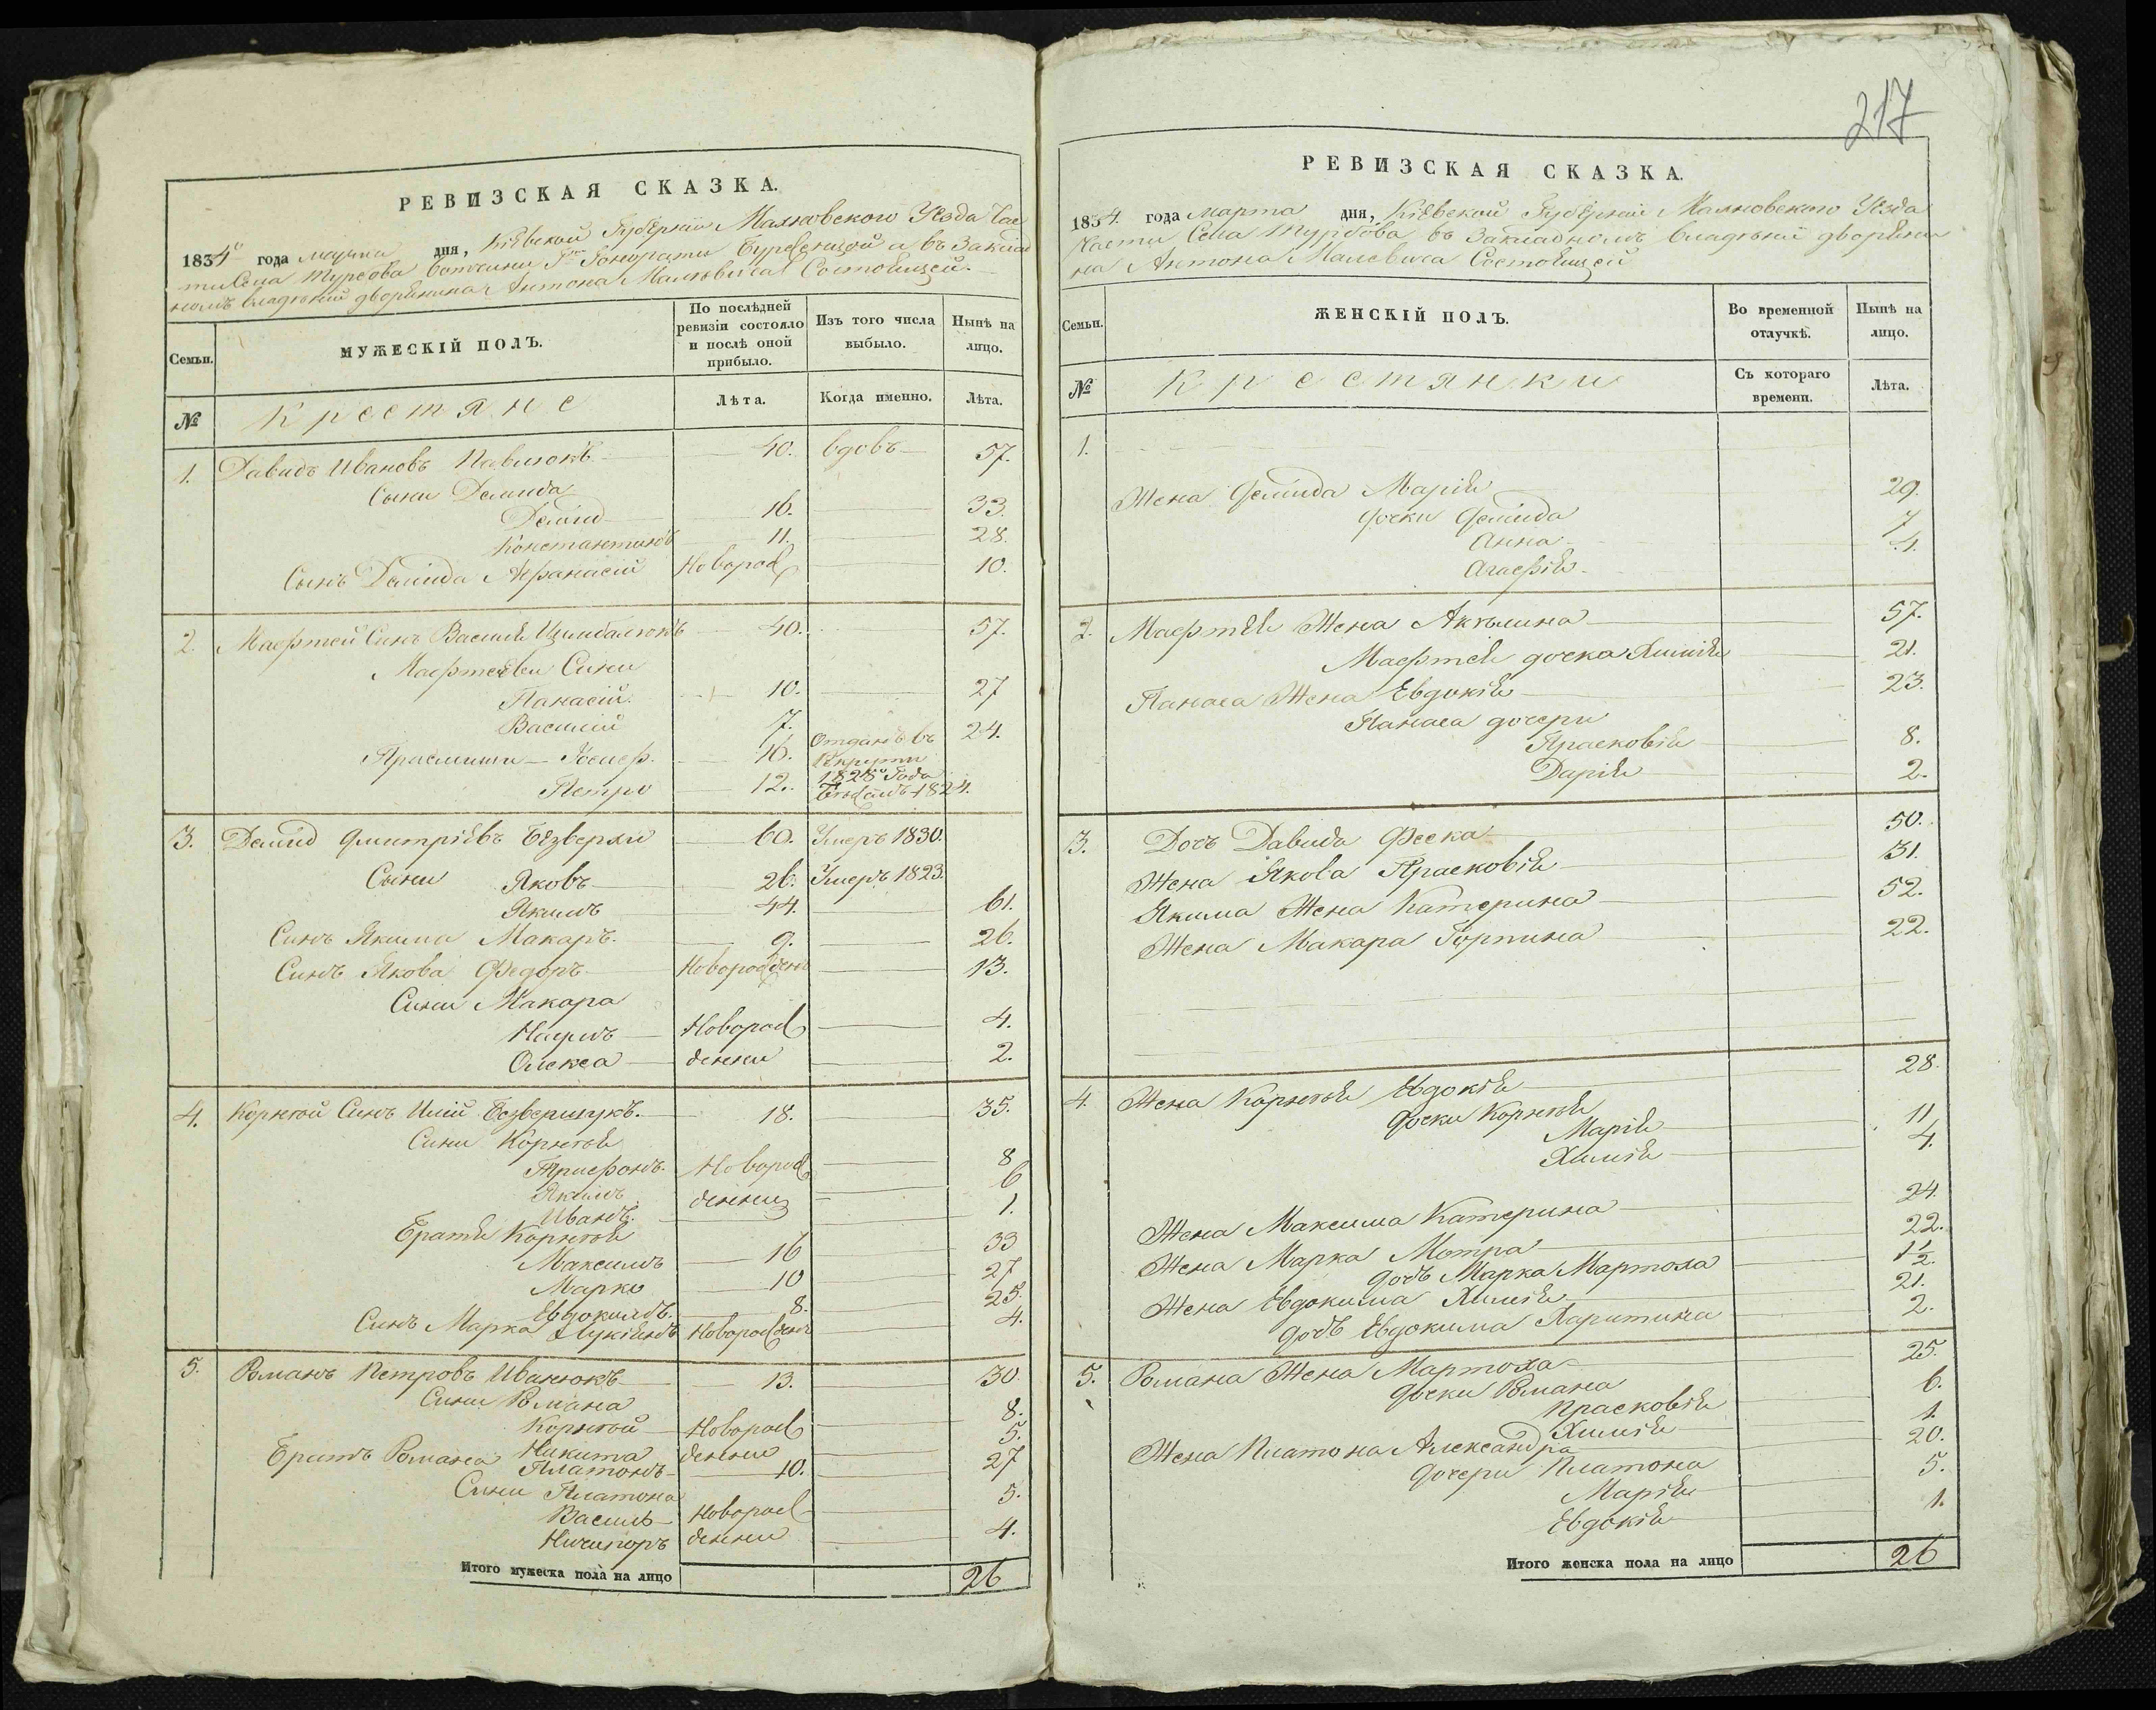 217
РЕВИЗСКАЯ СКАЗКА.
1834 года марта дня, Кіевской Губерніи Махновского Уезда Час
ти Села Турбова вотчини Гонорати а въ Заклад
номъ владѣніи дворянина Антона Малевича Состоящей.
Семьи.
МУЖЕСКІЙ ПОЛЪ.
По послѣдней ревизіи состояло и послѣ оной прибыло.
Изъ того числа выбыло.
Нынѣ на лицо.
№
Крестяне
Лѣта.
Когда именно.
Лѣта.
1. Давидъ Ивановъ Павлюкъ 40. вдовъ 57.
Сыни Демида
Демид 16. 33.
Константинъ 11. 28.
Сынъ Деміда Афанасій Новород 10.
2. Мафтей Синъ Васил Цимбалюкъ 40. 57.
Мафтееви Сини
Панасій. 10. 27
Василій 7. 24.
Іосиф. 16. Отданъ въ Рекрути 1828 Года
Петро 12. 1824.
3. Демид Дмитріевъ Безверхи 60. Умеръ 1830.
Сыни Яковъ 26. Умеръ 1823.
Якимъ 44. 61.
Синъ Якима Макаръ. 9. 26.
Синъ Якова Федоръ Новорожденъ 13.
Сини Макара
Наумъ Новорож 4.
Олекса денни 2.
4. Корнѣй Синъ Илій Безверщукъ. 18. 35.
Сини Корнѣя
Трифонъ. Новорож 8
Якимъ денни 6
Иванъ. 1.
Братя Корнѣя
Максимъ 16 33
Марко 10 27
Евдокимъ. 8. 25.
Синъ Марка Лукіянъ Новорожденъ 4.
5. Романъ Петровъ Иванюкъ 13. 30.
Сини Романа
Корнѣй Новорож 8.
Никита денни 5.
Братъ Романа Платонъ 10. 27
Сини Платона
Василь Новорож 5.
Ничипоръ денни 4.
Итого мужеска пола на лицо 26
РЕВИЗСКАЯ СКАЗКА.
1834. года марта дня, Кіевской Губерніи Махновского Уезда
Части Села Турбова въ Закладномъ владѣніи дворяни
на Антона Малевича Состоящей
Семьи.
ЖЕНСКІЙ ПОЛЪ.
Во временной отлучкѣ.
Нынѣ на лицо.
№
Крестянки
Съ котораго времени.
Лѣта.
1.
Жена Деміда Марія 29.
Дочки Деміда
Анна 7
Агафія 4.
2. Мафтея Жена Акулина 57.
Мафтея дочка Химія 21.
Панаса Жена Евдокія 23.
Панаса дочери
Прасковія 8.
Дарія 2.
3. Дочъ Давида Феска 50.
Жена Якова Прасковія 31.
Якима Жена Катерина 52.
Жена Макара Горпина 22.
4. Жена Корнѣя Евдокія 28.
Дочки Корнѣя
Марія 11
Химія 4.
Жена Максима Катерина 24.
Жена Марка Мотра 22.
Дочъ Марка Мартоха 1 1/2.
Жена Евдокима Химія 21.
Дочъ Евдокима Харитина 2.
5. Романа Жена Мартоха 25.
Дочки Романа
Прасковія 6.
Химія 1.
Жена Платона Александра 20.
Дочери Платона
Марія 5.
Евдокія 1.
Итого женска пола на лицо 26